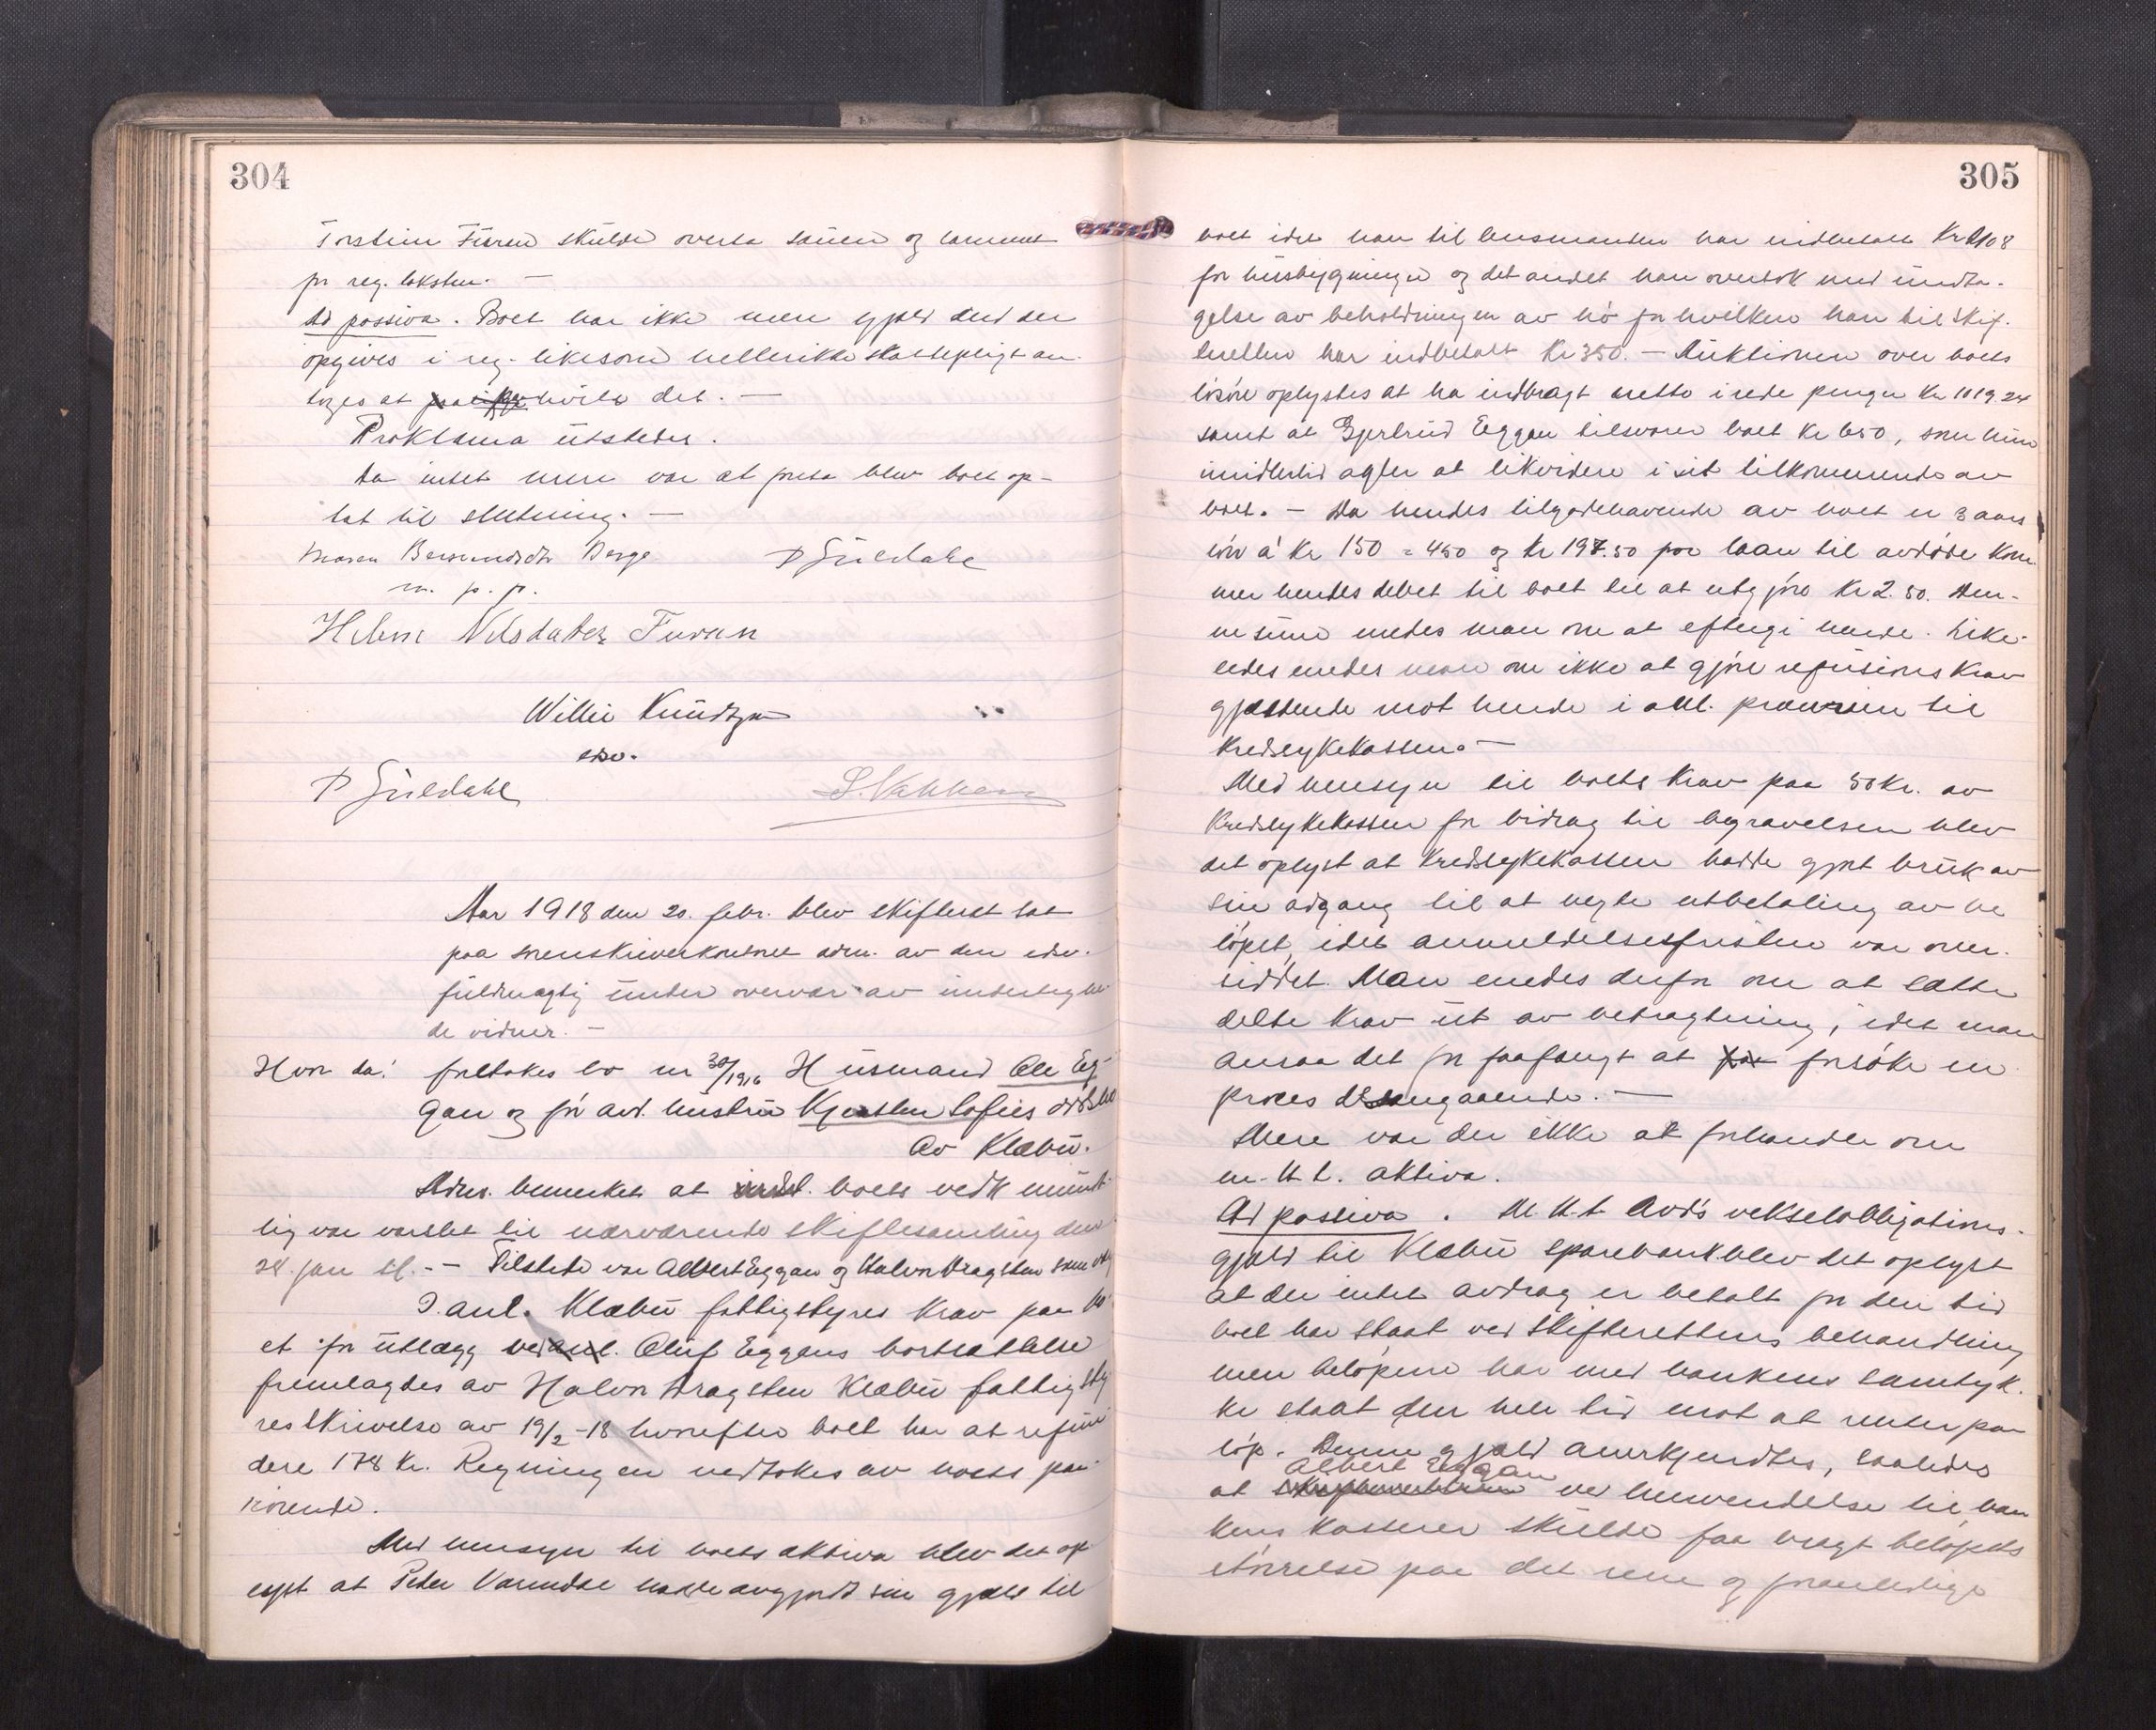 304
Torstein Furen skulde overta sauen og lammet
pr reg. taksten. —
Ad passiva. Boet har ikke mere gjæld end der
opgives i reg. likesom hellerikke skattepligt an-
tages at paahvile det. —
Proklama utstedes.
Da intet mere var at foreta blev boet op-
tat til slutning. —
Maren Bersvendsdtr Berge P Guldahl
m. p. p.
Helena Nilsdater Furan
Willie Knudtzon
edsv.
P Guldahl
Aar 1918 den 20. febr. blev skifteret sat
paa sorenskriverkontoret adm. av den edsv.
fuldmægtig under overvær av undertegne-
de vidner. —
Hvor da: foretokes bo nr 30/1916 Husmand Ole Eg-
gan og før avd. hustru Kjersten Sofies dødsbo
av Klæbu.
Adm. bemerket at boets vedk mundt-
lig var varslet til nærværende skiftesamling den
28. jan sl. — Tilstede var Albert Eggan og Halvor Dragsten som
I anl. Klæbu fattigstyres krav paa bo-
et for utlægg ved anl. Oluf Eggans bortsættelse
fremlagdes av Halvor Dragsten Klæbu fattigsty-
res skrivelse av 19/2-18 hvorefter boet har at refun-
dere 178 kr. Regningen vedtokes av boets paa-
rørende.
Med hensyn til boets aktiva blev det op-
lyst at Peder Varmdal hadde avgjordt sin gjæld til
305
boet idet han til lensmanden har indbetalt Kr 408
for husbygningen og det andet han overtok med undta-
gelse av beholdningen av hø for hvilken han til skif-
teretten har indbetalt Kr 350. — Auktionen over boets
løsøre oplystes at ha indbragt netto i rede penger Kr 1019.24
samt at Gjertrud Eggan tilsvarer boet Kr 650, som hun
imidlertid agter at likvidere i sit tilkommende av
boet. — Da hendes tilgodehavende av boet er 3 aars
løn á Kr 150 = 450 og Kr 197.50 for laan til avdøde kom-
mer hendes debet til boet til at utgjøre Kr 2.50. Den-
ne sum enedes man om at eftergi hende. Like-
ledes enedes man om ikke at gjøre refusions krav
gjældende mot hende i anl. præmien til
kredssykekassen. —
Med hensyn til boets krav paa 50 kr. av
kredssykekassen for bidrag til begravelsen blev
det oplyst at kredssykekassen hadde gjort bruk av
sin adgang til at negte utbetaling av be
løpet, idet anmeldelsesfristen var over-
siddet. Man enedes derfor om at sætte
dette krav ut av betragtning, idet man
ansaa det for faafængt at forsøke en
proces desangaaende. —
Mere var der ikke at forhandle om
m. h. t. aktiva.
Ad passiva. M. h. t. avd's vekselobligations-
gjæld til Klæbu sparebank blev det oplyst
at der intet avdrag er betalt for den tid
boet har staat ved skifterettens behandling
men beløpene har med bankens samtyk-
ke staat den hele tid mot at renter paa
løp. Denne gjæld anerkjendtes, saaledes
Albert Eggan
at ved henvendelse til ban
kens kasserer skulde faa bragt beløpets
størrelse paa det rene og foranledige